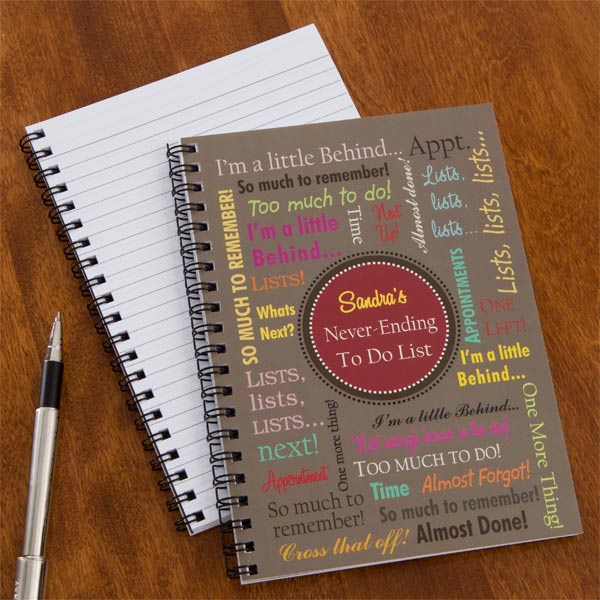 I'm a little Behind...
Appt.
So much to remember!
Too much to do!
I'm a little
Behind...
Time
Next
Up!
Almost done!
Lists,
lists,
lists...
Lists, lists, lists...
SO MUCH TO REMEMBER!
LISTS!
Whats
Next?
Sandra's
Never-Ending
To Do List
APPOINTMENTS
ONE
LEFT!
I'm a little
Behind...
LISTS,
lists,
LISTS...
next!
One more thing!
I'm a little Behind...
Not enough hours in the day!
TOO MUCH TO DO!
Appointment
Time
Almost Forgot!
One More Thing!
So much to
remember!
So much to remember!
Cross that off!
Almost Done!